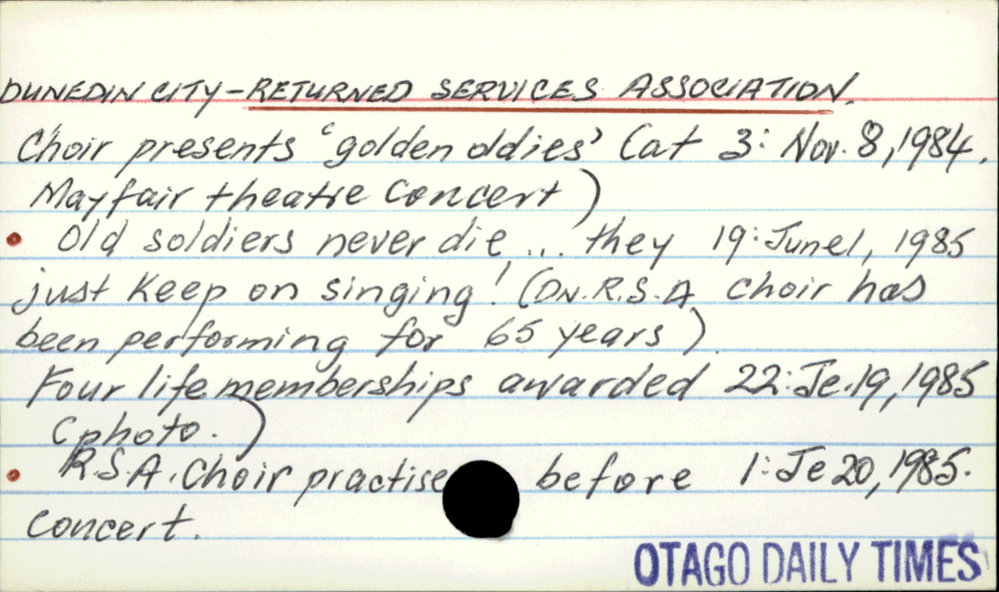 DUNEDIN CITY - RETURNED SERVICES ASSOCIATION.
Choir presents 'golden oldies' (at 3: Nov. 8, 1984.
Mayfair theatre concert)
• Old soldiers never die ... they 19: June 1, 1985
just keep on singing! (DN. R.S.A choir has
been performing for 65 years).
Four life memberships awarded 22: Je. 19, 1985
(photo.)
• R.S.A. Choir practise before 1: Je 20, 1985.
concert.
OTAGO DAILY TIMES